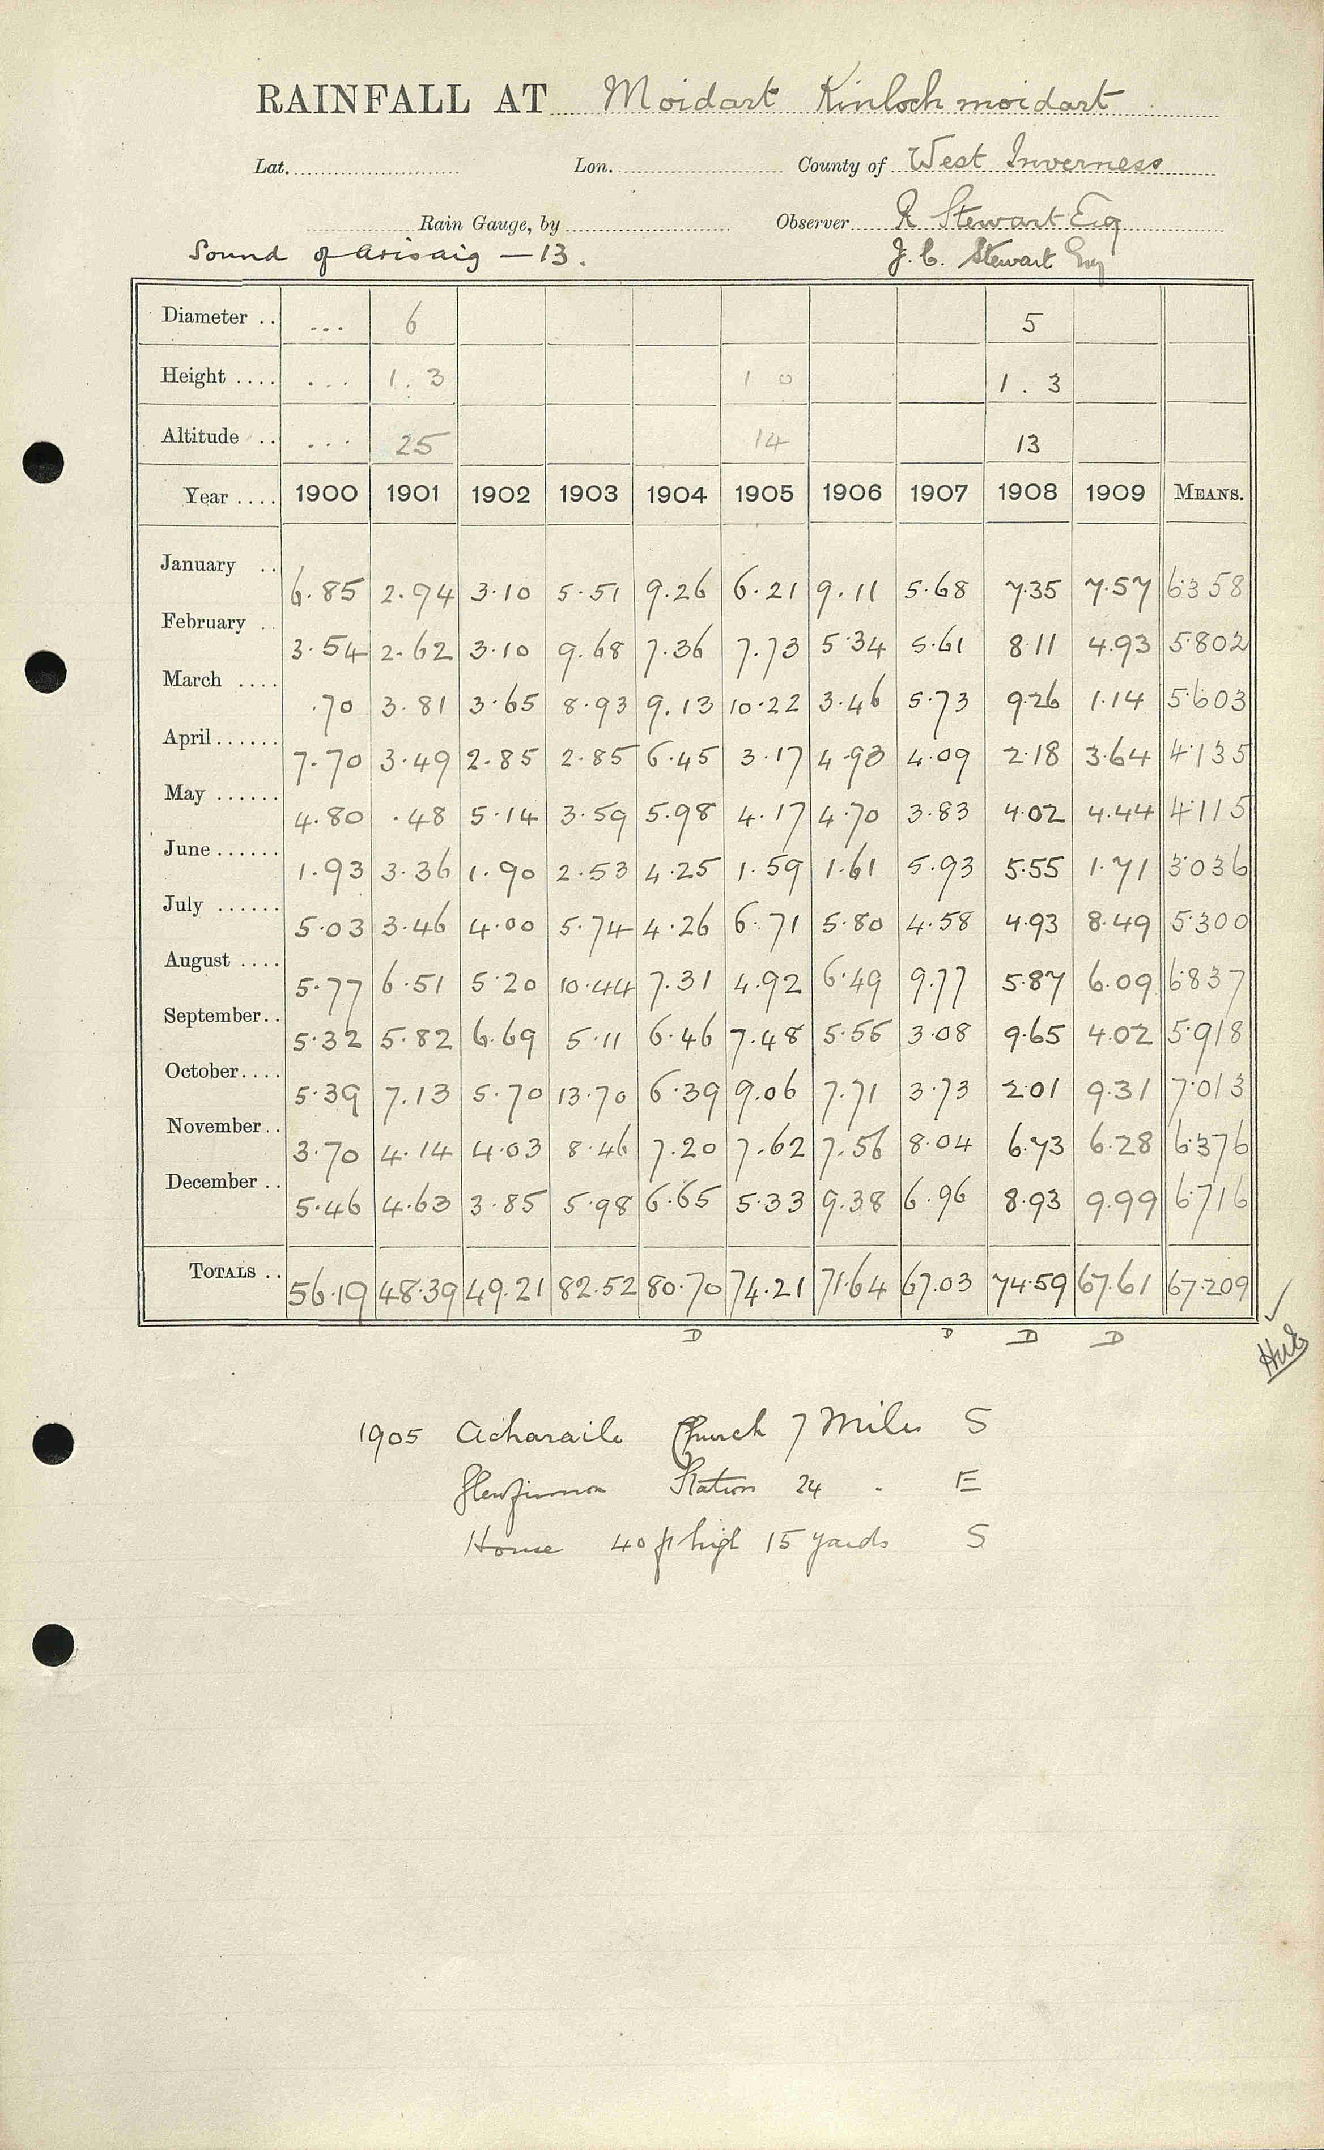 RAINFALL AT Moidart Kinlochmoidart
Lat. Lon. County of West Inverness
Rain Gauge, by Observer R Stewart Esq
Sound of Arisaig — 13. J. C. Stewart Esq
Diameter .. ... 6 5
Height .... ... 1.3 1 0 1.3
Altitude .. ... 25 14 13
Year .... 1900 1901 1902 1903 1904 1905 1906 1907 1908 1909 MEANS.
January .. 6.85 2.94 3.10 5.51 9.26 6.21 9.11 5.68 7.35 7.57 6.358
February .. 3.54 2.62 3.10 9.68 7.36 7.73 5.34 5.61 8.11 4.93 5.802
March .... .70 3.81 3.65 8.93 9.13 10.22 3.46 5.73 9.26 1.14 5.603
April...... 7.70 3.49 2.85 2.85 6.45 3.17 4.93 4.09 2.18 3.64 4.135
May ...... 4.80 .48 5.14 3.59 5.98 4.17 4.70 3.83 4.02 4.44 4.115
June...... 1.93 3.36 1.90 2.53 4.25 1.59 1.61 5.93 5.55 1.71 3.036
July ...... 5.03 3.46 4.00 5.74 4.26 6.71 5.80 4.58 4.93 8.49 5.300
August .... 5.77 6.51 5.20 10.44 7.31 4.92 6.49 9.77 5.87 6.09 6.837
September.. 5.32 5.82 6.69 5.11 6.46 7.48 5.55 3.08 9.65 4.02 5.918
October.... 5.39 7.13 5.70 13.70 6.39 9.06 7.71 3.73 2.01 9.31 7.013
November.. 3.70 4.14 4.03 8.46 7.20 7.62 7.56 8.04 6.73 6.28 6.376
December .. 5.46 4.63 3.85 5.98 6.65 5.33 9.38 6.96 8.93 9.99 6.716
TOTALS .. 56.19 48.39 49.21 82.52 80.70 74.21 71.64 67.03 74.59 67.61 67.209
D D D D
1905 Acharaile Church 7 Miles S
Station 24 " E
House 40 ft high 15 yards S